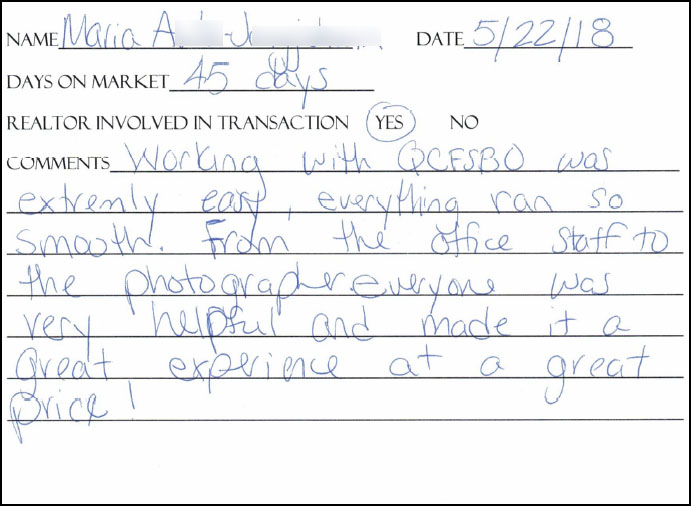 NAME Maria A
DATE 5/22/18
DAYS ON MARKET 45 days
REALTOR INVOLVED IN TRANSACTION YES NO
COMMENTS Working with QCFSBO was
extremly easy, everything ran so
smooth. From the office staff to
the photographer everyone was
very helpful and made it a
great experience at a great
price!